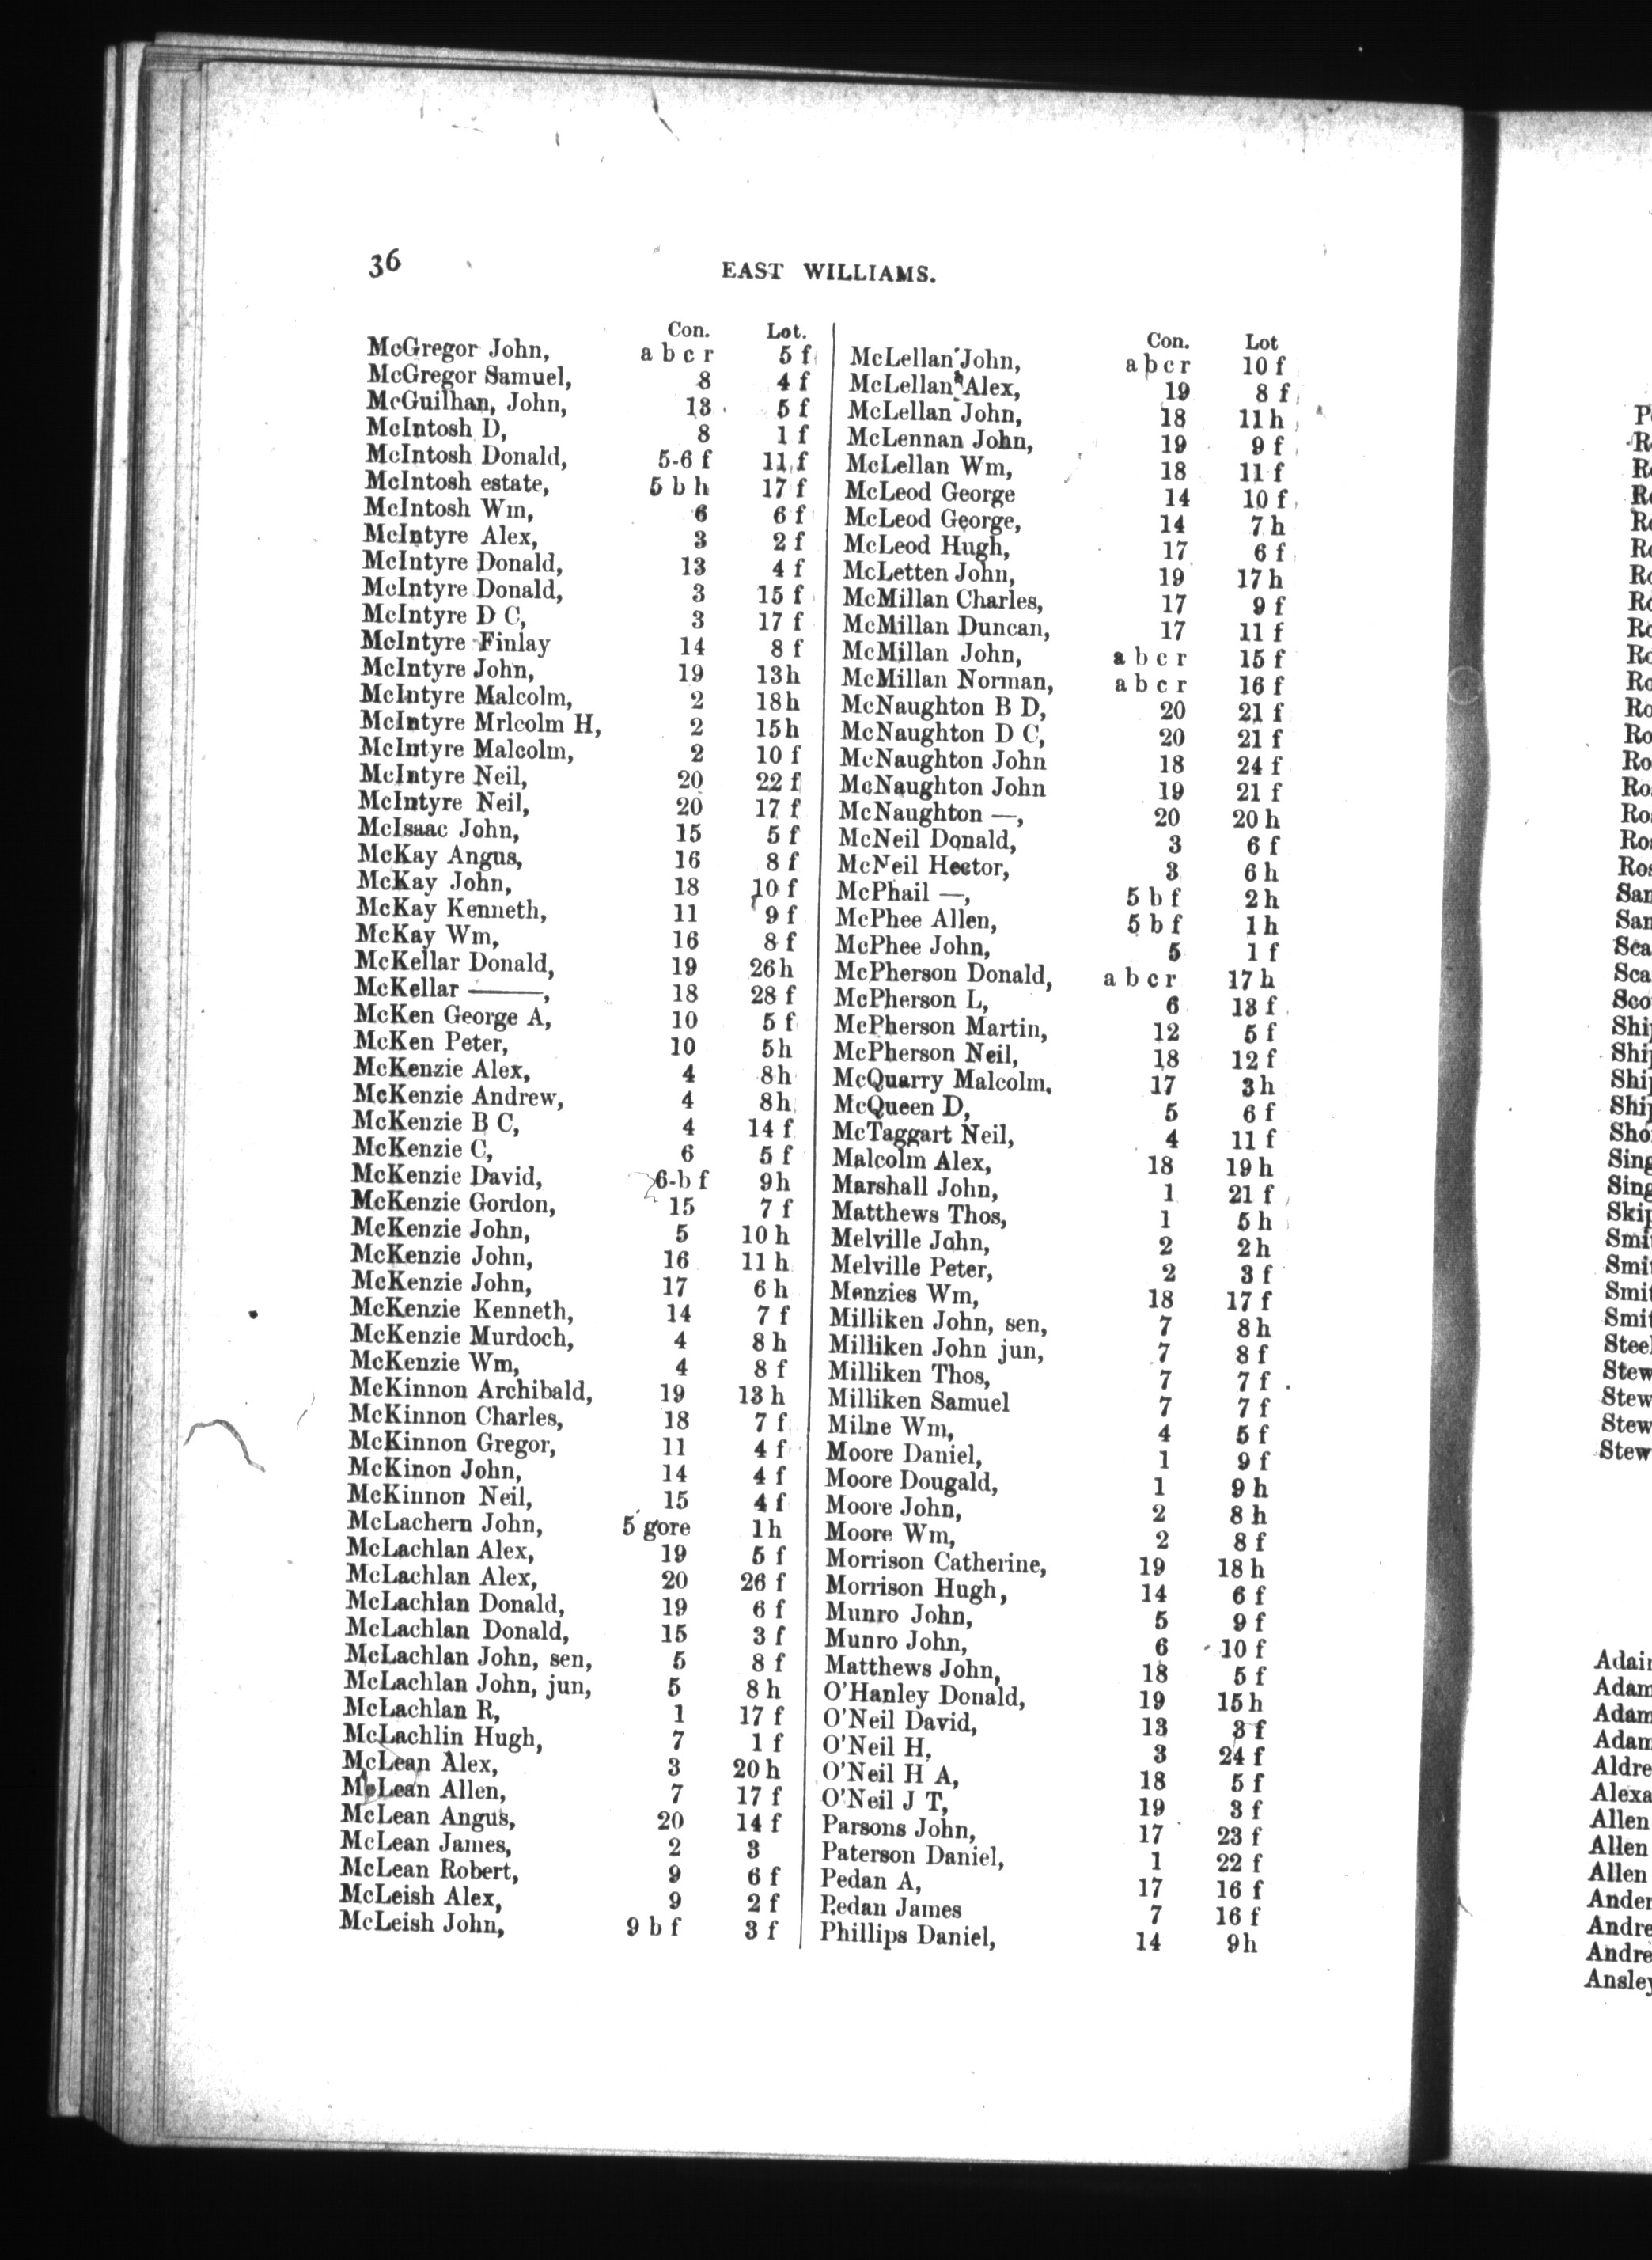 36
EAST WILLIAMS.
Con. Lot.
McGregor John, a b c r 5 f
McGregor Samuel, 8 4 f
McGuilhan, John, 13 5 f
McIntosh D, 8 1 f
McIntosh Donald, 5-6 f 11 f
McIntosh estate, 5 b h 17 f
McIntosh Wm, 6 6 f
McIntyre Alex, 3 2 f
McIntyre Donald, 13 4 f
McIntyre Donald, 3 15 f
McIntyre D C, 3 17 f
McIntyre Finlay 14 8 f
McIntyre John, 19 13 h
McIntyre Malcolm, 2 18 h
McIntyre Mrlcolm H, 2 15 h
McIntyre Malcolm, 2 10 f
McIntyre Neil, 20 22 f
McIntyre Neil, 20 17 f
McIsaac John, 15 5 f
McKay Angus, 16 8 f
McKay John, 18 10 f
McKay Kenneth, 11 9 f
McKay Wm, 16 8 f
McKellar Donald, 19 26 h
McKellar ———, 18 28 f
McKen George A, 10 5 f
McKen Peter, 10 5 h
McKenzie Alex, 4 8 h
McKenzie Andrew, 4 8 h
McKenzie B C, 4 14 f
McKenzie C, 6 5 f
McKenzie David, 6-b f 9 h
McKenzie Gordon, 15 7 f
McKenzie John, 5 10 h
McKenzie John, 16 11 h
McKenzie John, 17 6 h
McKenzie Kenneth, 14 7 f
McKenzie Murdoch, 4 8 h
McKenzie Wm, 4 8 f
McKinnon Archibald, 19 13 h
McKinnon Charles, 18 7 f
McKinnon Gregor, 11 4 f
McKinon John, 14 4 f
McKinnon Neil, 15 4 f
McLachern John, 5 gore 1 h
McLachlan Alex, 19 5 f
McLachlan Alex, 20 26 f
McLachlan Donald, 19 6 f
McLachlan Donald, 15 3 f
McLachlan John, sen, 5 8 f
McLachlan John, jun, 5 8 h
McLachlan R, 1 17 f
McLachlin Hugh, 7 1 f
McLean Alex, 3 20 h
McLean Allen, 7 17 f
McLean Angus, 20 14 f
McLean James, 2 3
McLean Robert, 9 6 f
McLeish Alex, 9 2 f
McLeish John, 9 b f 3 f
Con. Lot
McLellan John, a b c r 10 f
McLellan Alex, 19 8 f
McLellan John, 18 11 h
McLennan John, 19 9 f
McLellan Wm, 18 11 f
McLeod George 14 10 f
McLeod George, 14 7 h
McLeod Hugh, 17 6 f
McLetten John, 19 17 h
McMillan Charles, 17 9 f
McMillan Duncan, 17 11 f
McMillan John, a b c r 15 f
McMillan Norman, a b c r 16 f
McNaughton B D, 20 21 f
McNaughton D C, 20 21 f
McNaughton John 18 24 f
McNaughton John 19 21 f
McNaughton —, 20 20 h
McNeil Donald, 3 6 f
McNeil Hector, 3 6 h
McPhail —, 5 b f 2 h
McPhee Allen, 5 b f 1 h
McPhee John, 5 1 f
McPherson Donald, a b c r 17 h
McPherson L, 6 13 f
McPherson Martin, 12 5 f
McPherson Neil, 18 12 f
McQuarry Malcolm, 17 3 h
McQueen D, 5 6 f
McTaggart Neil, 4 11 f
Malcolm Alex, 18 19 h
Marshall John, 1 21 f
Matthews Thos, 1 5 h
Melville John, 2 2 h
Melville Peter, 2 3 f
Menzies Wm, 18 17 f
Milliken John, sen, 7 8 h
Milliken John jun, 7 8 f
Milliken Thos, 7 7 f
Milliken Samuel 7 7 f
Milne Wm, 4 5 f
Moore Daniel, 1 9 f
Moore Dougald, 1 9 h
Moore John, 2 8 h
Moore Wm, 2 8 f
Morrison Catherine, 19 18 h
Morrison Hugh, 14 6 f
Munro John, 5 9 f
Munro John, 6 10 f
Matthews John, 18 5 f
O'Hanley Donald, 19 15 h
O'Neil David, 13 3 f
O'Neil H, 3 24 f
O'Neil H A, 18 5 f
O'Neil J T, 19 3 f
Parsons John, 17 23 f
Paterson Daniel, 1 22 f
Pedan A, 17 16 f
Pedan James 7 16 f
Phillips Daniel, 14 9 h
Adam
Adam
Allen
Allen
Allen